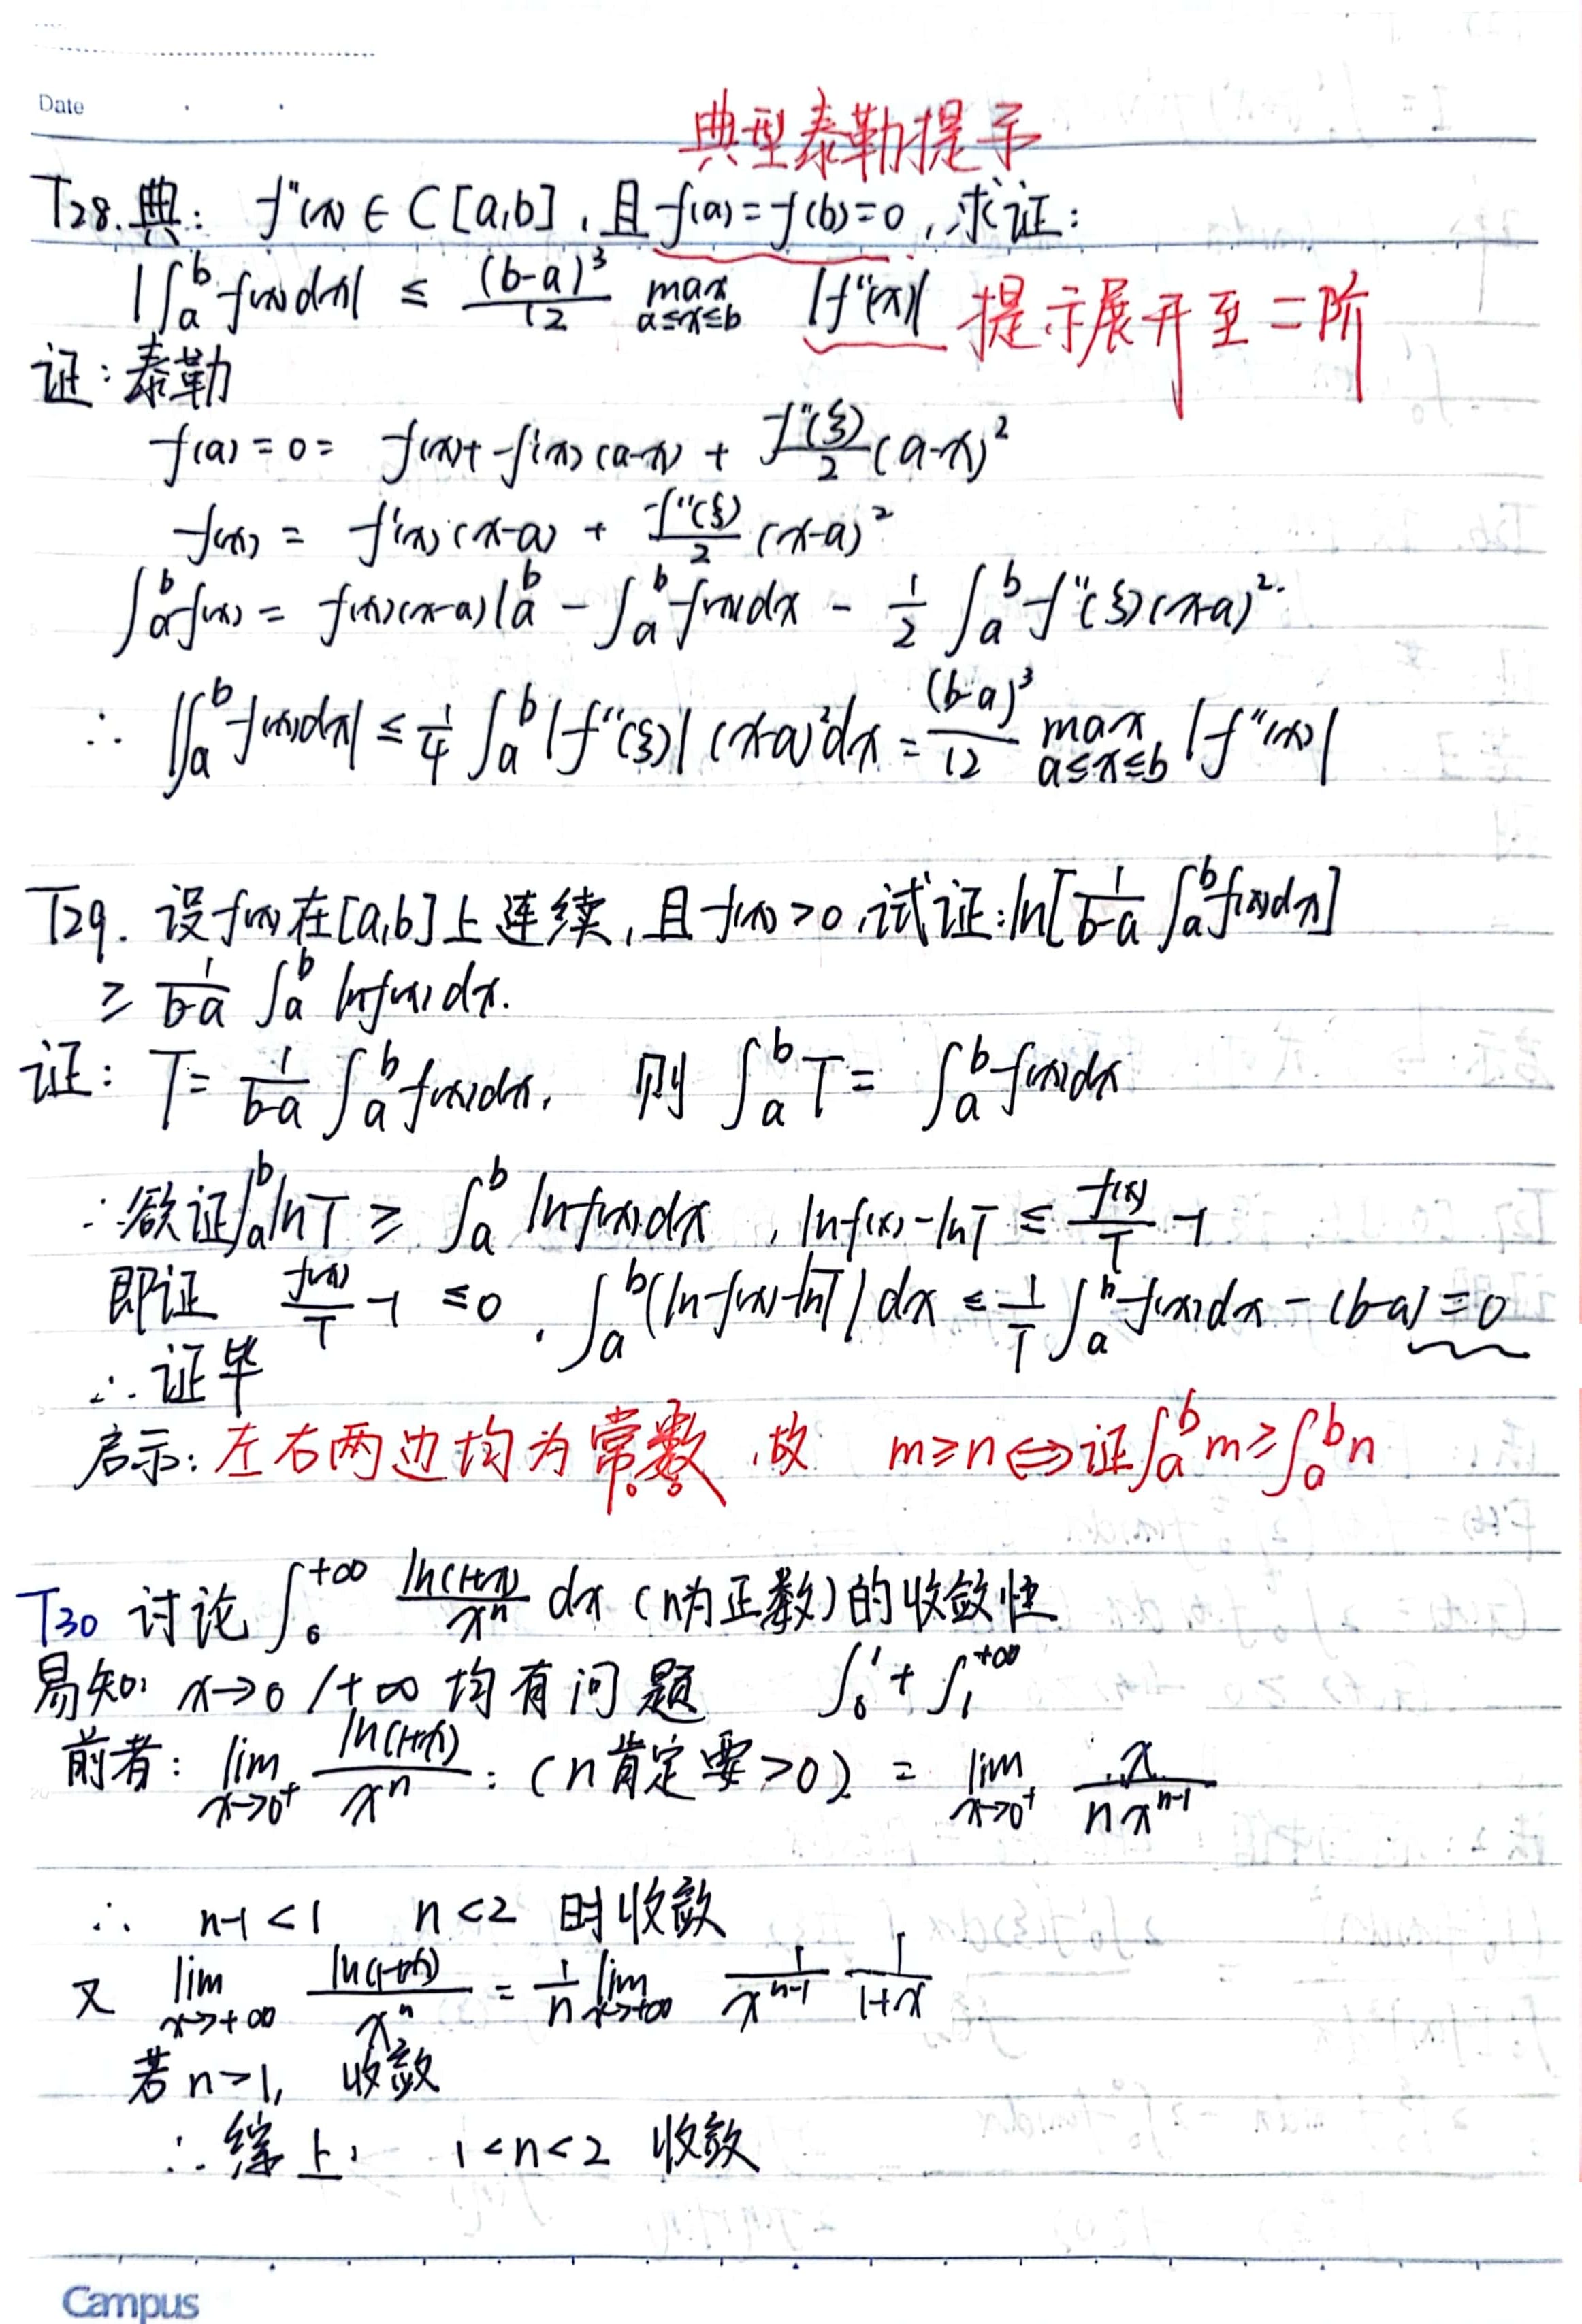 Date
典型泰勒提示
T28.典: f"(x) ∈ C [a,b] ,且 f(a) = f(b) = 0 ,求证:
|∫_a^b f(x)dx| ≤ (b-a)^3/12 max_{a≤x≤b} |f"(x)| 提示展开至二阶
证:泰勒
f(a) = 0 = f(x) + f'(x)(a-x) + f"(ξ)/2 (a-x)^2
f(x) = f'(x)(x-a) + f"(ξ)/2 (x-a)^2
∫_a^b f(x) = f(x)(x-a)|_a^b - ∫_a^b f(x)dx - 1/2 ∫_a^b f"(ξ)(x-a)^2.
∴ |∫_a^b f(x)dx| ≤ 1/4 ∫_a^b |f"(ξ)| (x-a)^2 dx = (b-a)^3/12 max_{a≤x≤b} |f"(x)|
T29. 设f(x)在[a,b]上连续,且f(x)>0,试证:ln[1/(b-a) ∫_a^b f(x)dx]
≥ 1/(b-a) ∫_a^b lnf(x)dx.
证: T = 1/(b-a) ∫_a^b f(x)dx, 则 ∫_a^b T = ∫_a^b f(x)dx
∴欲证∫_a^b lnT ≥ ∫_a^b lnf(x)dx , lnf(x) - lnT ≤ f(x)/T - 1
即证 f(x)/T - 1 ≤ 0 . ∫_a^b (lnf(x) - lnT) dx ≤ 1/T ∫_a^b f(x)dx - (b-a) = 0
∴ 证毕
启示: 左右两边均为常数,故 m≥n ⇔ 证∫_a^b m ≥ ∫_a^b n
T30 讨论 ∫_0^{+∞} ln(1+x)/x^n dx (n为正数)的收敛性
易知: x→0 / +∞ 均有问题 ∫_0^1 + ∫_1^{+∞}
前者: lim_{x→0+} ln(1+x)/x^n : (n肯定要>0) = lim_{x→0+} x/(n x^{n-1})
∴ n-1 < 1 n < 2 时收敛
又 lim_{x→+∞} ln(1+x)/x^n = 1/n lim_{x→+∞} 1/x^{n-1} 1/(1+x)
若 n>1, 收敛
∴综上, 1<n<2 收敛
Campus